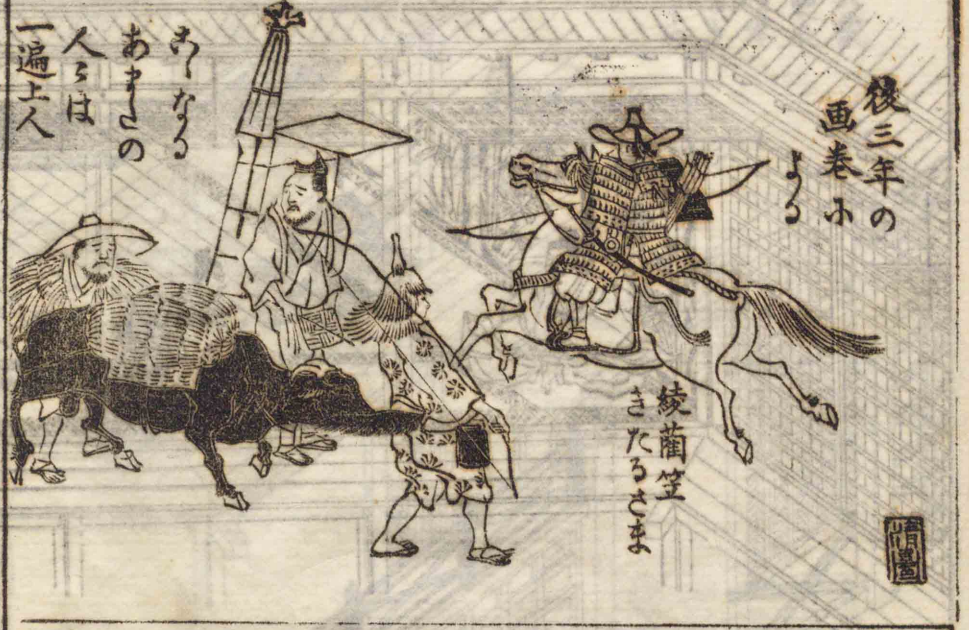 後三年の
画巻に
よる
綾藺笠
きたるさま
こゝなる
あまたの
人々は
一遍上人